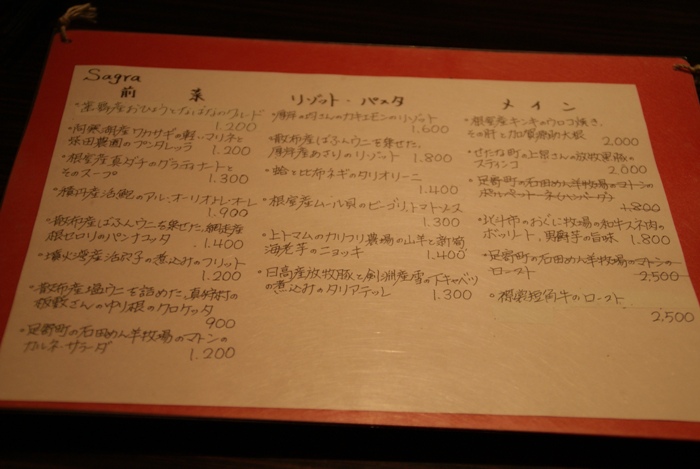 Sagra
前菜
・
産おひょうとなばなの
1.200
・阿寒湖産ワカサギの軽いマリネと
農園のプンタレッラ 1.200
・根室産真ダチのグラティナートと
そのスープ 1.300
・積丹産活鮑のアル・オーリオ・オレ
1.900
・散布産ばふんウニを乗せた網走産
根セロリのパンナコッタ 1.400
・噴火湾産活穴子の煮込みのフリット
1.200
・散布産塩ウニを詰めた真狩村の
さんのゆり根のクロケッタ
900
・足寄町の石田めん羊牧場のマトンの
サラーダ 1.200
リゾット・パスタ
・厚岸の さんのカキとモンのリゾット
1.600
・散布産ばふんウニを乗せた、
厚岸産あさりのリゾット 1.800
・蛤と比布ネギのタリオリーニ
1.400
・根室産ムール貝のビーゴリ、トマトソース
1.300
・上トマムのカリフリ農場の山羊と新
海老芋のニョッキ 1.400
・日高産放牧豚と剣淵産雪の下キャベツ
の煮込みのタリアテッレ 1.300
メイン
・根室産キンキのウロコ焼き、
その肝と加賀 大根
2.000
・せたな町の さんの放牧黒豚の
スティンコ 2.000
・足寄町の石田めん羊牧場のマトンの
ポルペットーネ(ハンバーグ)
1.800
・北斗市のおぐに牧場の和牛スネ肉の
ボッリート、黒 芋の旨味 1.800
・足寄町の石田めん羊牧場のマトンの
ロースト 2.500
・根室短角牛のロースト
2.500